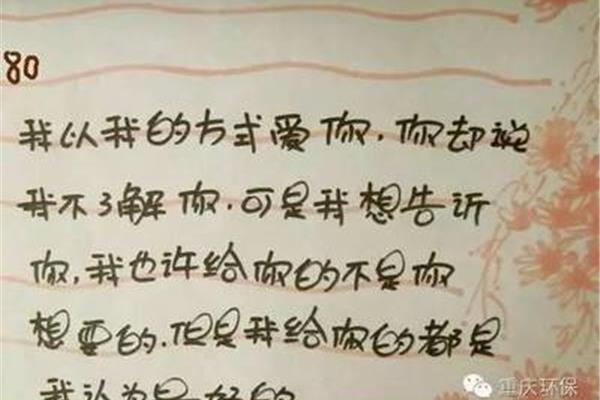 80
我以我的方式爱你.你却说
我不了解你.可是我想告诉
你,我也许给你的不是你
想要的.但是我给你的都是
我认为是好的
重庆环保